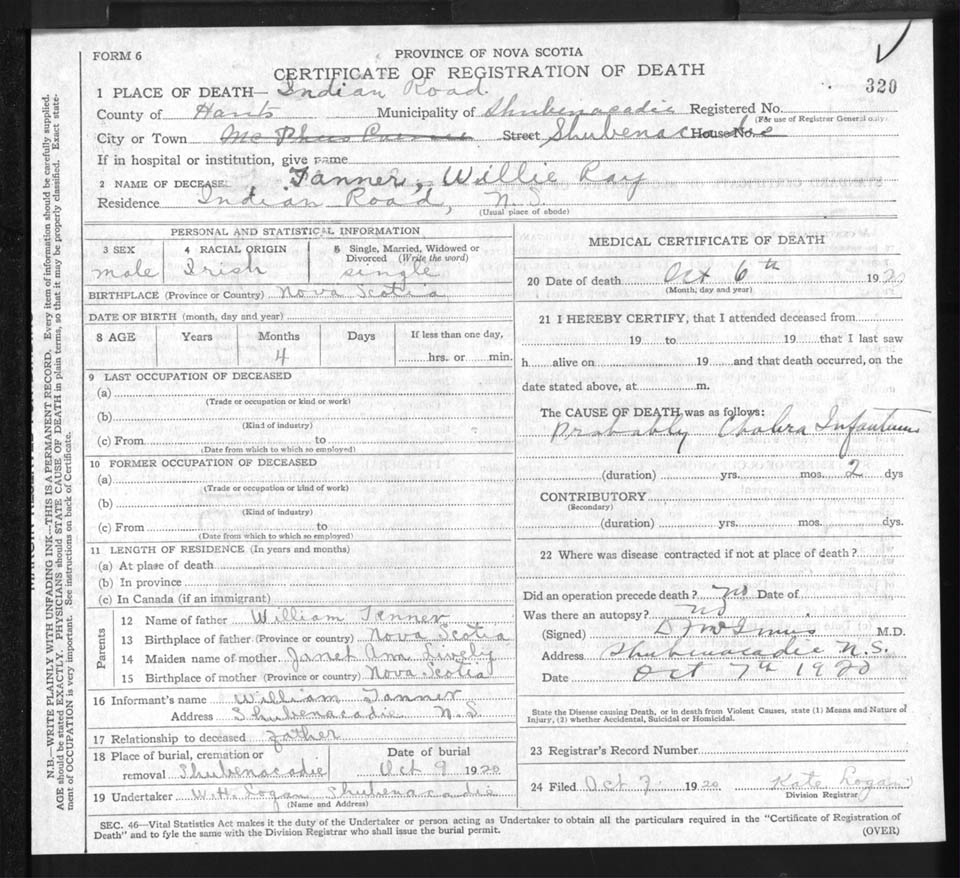 FORM 6
PROVINCE OF NOVA SCOTIA
CERTIFICATE OF REGISTRATION OF DEATH
320
1 PLACE OF DEATH— Indian Road.
County of Hants Municipality of Shubenacadie Registered No.
(For use of Registrar General only)
City or Town Street Shubenacadie House No.
If in hospital or institution, give name
2 NAME OF DECEASED Tanner, Willie Ray
Residence Indian Road, N.S.
(Usual place of abode)
PERSONAL AND STATISTICAL INFORMATION
3 SEX 4 RACIAL ORIGIN 5 Single, Married, Widowed or Divorced (Write the word)
male Irish single
BIRTHPLACE (Province or Country) Nova Scotia
DATE OF BIRTH (month, day and year)
8 AGE Years Months Days If less than one day,
4 hrs. or min.
9 LAST OCCUPATION OF DECEASED
(a)
(Trade or occupation or kind or work)
(b)
(Kind of industry)
(c) From to
(Date from which to which so employed)
10 FORMER OCCUPATION OF DECEASED
(a)
(Trade or occupation or kind of work)
(b)
(Kind of industry)
(c) From to
(Date from which to which so employed)
11 LENGTH OF RESIDENCE (In years and months)
(a) At place of death
(b) In province
(c) In Canada (if an immigrant)
Parents
12 Name of father William Tanner
13 Birthplace of father (Province or country) Nova Scotia
14 Maiden name of mother Janet Ann Lively
15 Birthplace of mother (Province or country) Nova Scotia
16 Informant's name William Tanner
Address Shubenacadie N.S
17 Relationship to deceased father
18 Place of burial, cremation or Date of burial
removal Shubenacadie Oct 9 1920
19 Undertaker W.H. Logan Shubenacadie
(Name and Address)
MEDICAL CERTIFICATE OF DEATH
20 Date of death Oct 6th 1920
(Month, day and year)
21 I HEREBY CERTIFY, that I attended deceased from
19 to 19 that I last saw
h alive on 19 and that death occurred, on the
date stated above, at m.
The CAUSE OF DEATH was as follows:
Probably Cholera Infantum
(duration) yrs. mos. 2 dys
CONTRIBUTORY
(Secondary)
(duration) yrs. mos. dys.
22 Where was disease contracted if not at place of death?
Did an operation precede death? no Date of
Was there an autopsy? no
(Signed) M.D.
Address Shubenacadie N.S.
Date Oct 7th 1920
State the Disease causing Death, or in death from Violent Causes, state (1) Means and Nature of
Injury, (2) whether Accidental, Suicidal or Homicidal.
23 Registrar's Record Number
24 Filed Oct 7 1920 Kate Logan
Division Registrar
SEC. 46—Vital Statistics Act makes it duty of the Undertaker or person acting as Undertaker to obtain all the particulars required in the "Certificate of Registration of
Death" and to fyle the same with the Division Registrar who shall issue the burial permit.
(OVER)
N.B.—WRITE PLAINLY WITH UNFADING INK—THIS IS A PERMANENT RECORD. Every item of information should be carefully supplied.
AGE should be stated EXACTLY. PHYSICIANS should STATE CAUSE OF DEATH in plain terms, so that it may be properly classified. Exact state-
ment of OCCUPATION is very important. See instructions on back of Certificate.